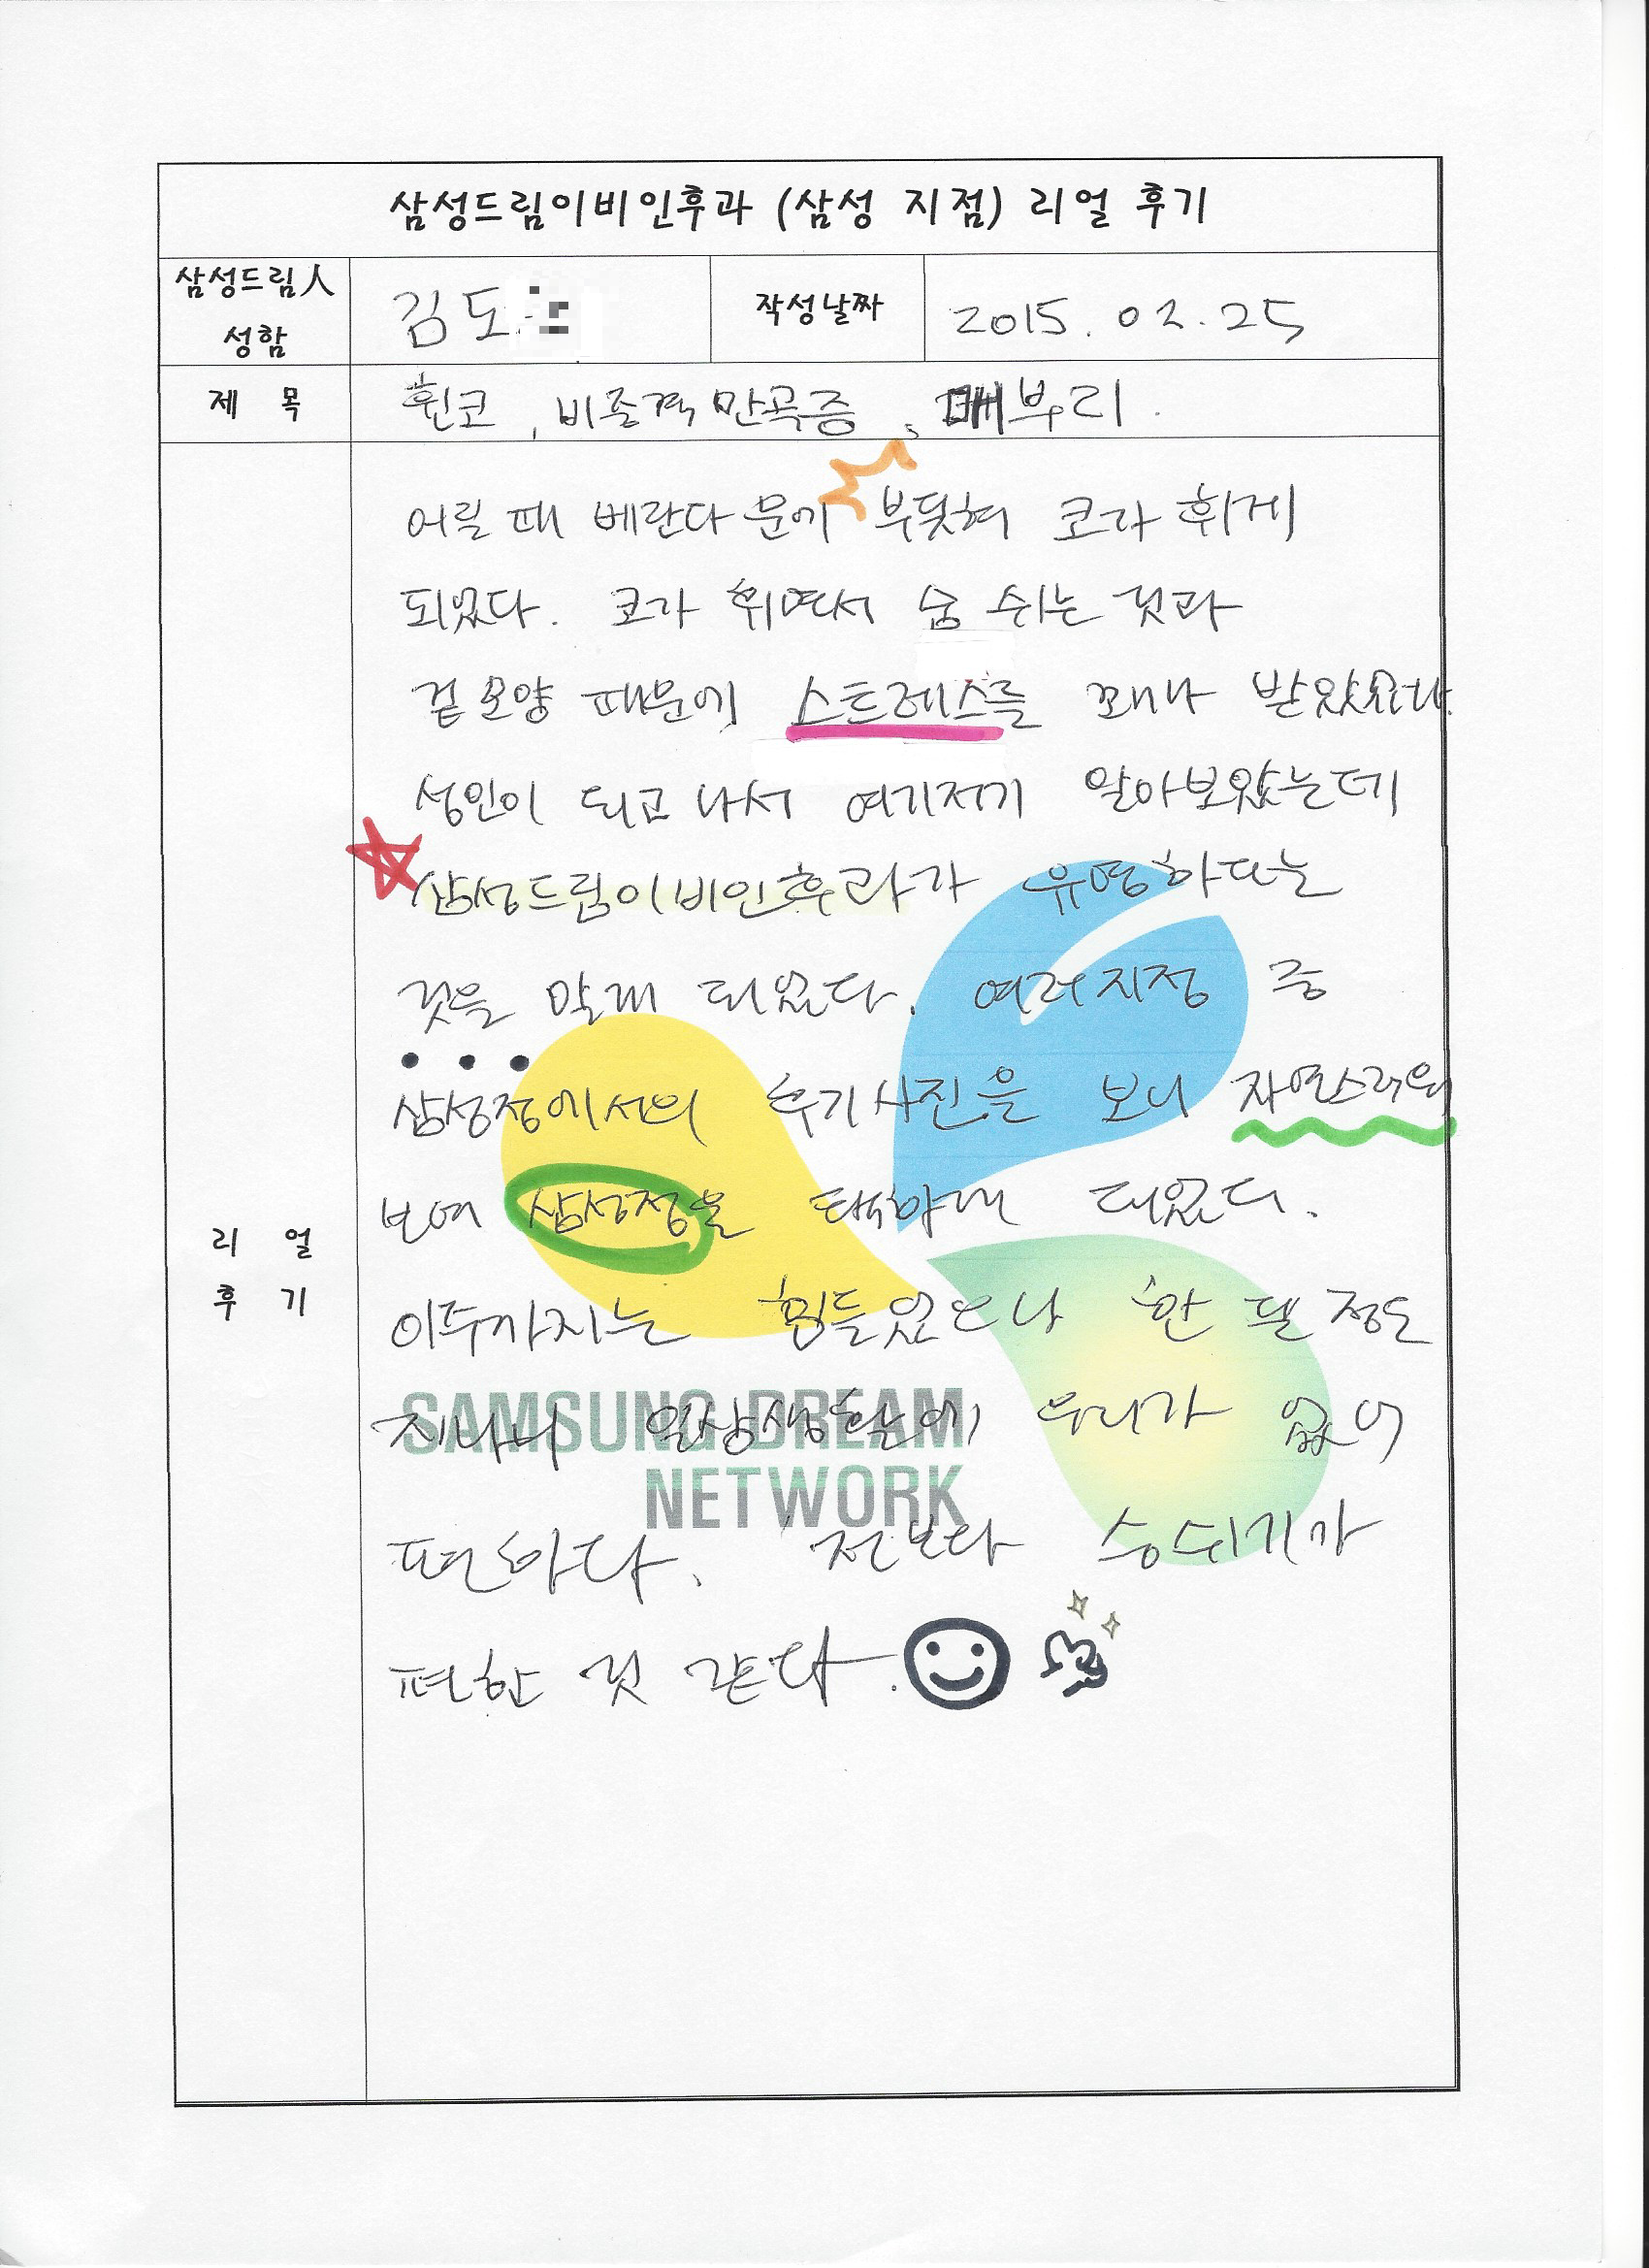 삼성드림이비인후과 (삼성 지점) 리얼 후기
삼성드림人
성함
김도
작성날짜
2015. 02. 25
제 목
휜코, 비중격만곡증, 매부리.
리 얼
후 기
어릴 때 베란다 문에 부딪혀 코가 휘게
되었다. 코가 휘면서 숨 쉬는 것과
겉모양 때문에 스트레스를 꽤나 받았었다.
성인이 되고 나서 여기저기 알아보았는데
삼성드림이비인후과가 유명하다는
것을 알게 되었다. 여러지점 중
삼성점에서의 후기사진을 보니 자연스러워
보여 삼성점을 택하게 되었다.
이주까지는 힘들었으나 한 달 정도
지나니 일상생활에 무리가 없어
편하다. 전보다 숨쉬기가
편한 것 같다.
SAMSUNG DREAM
NETWORK